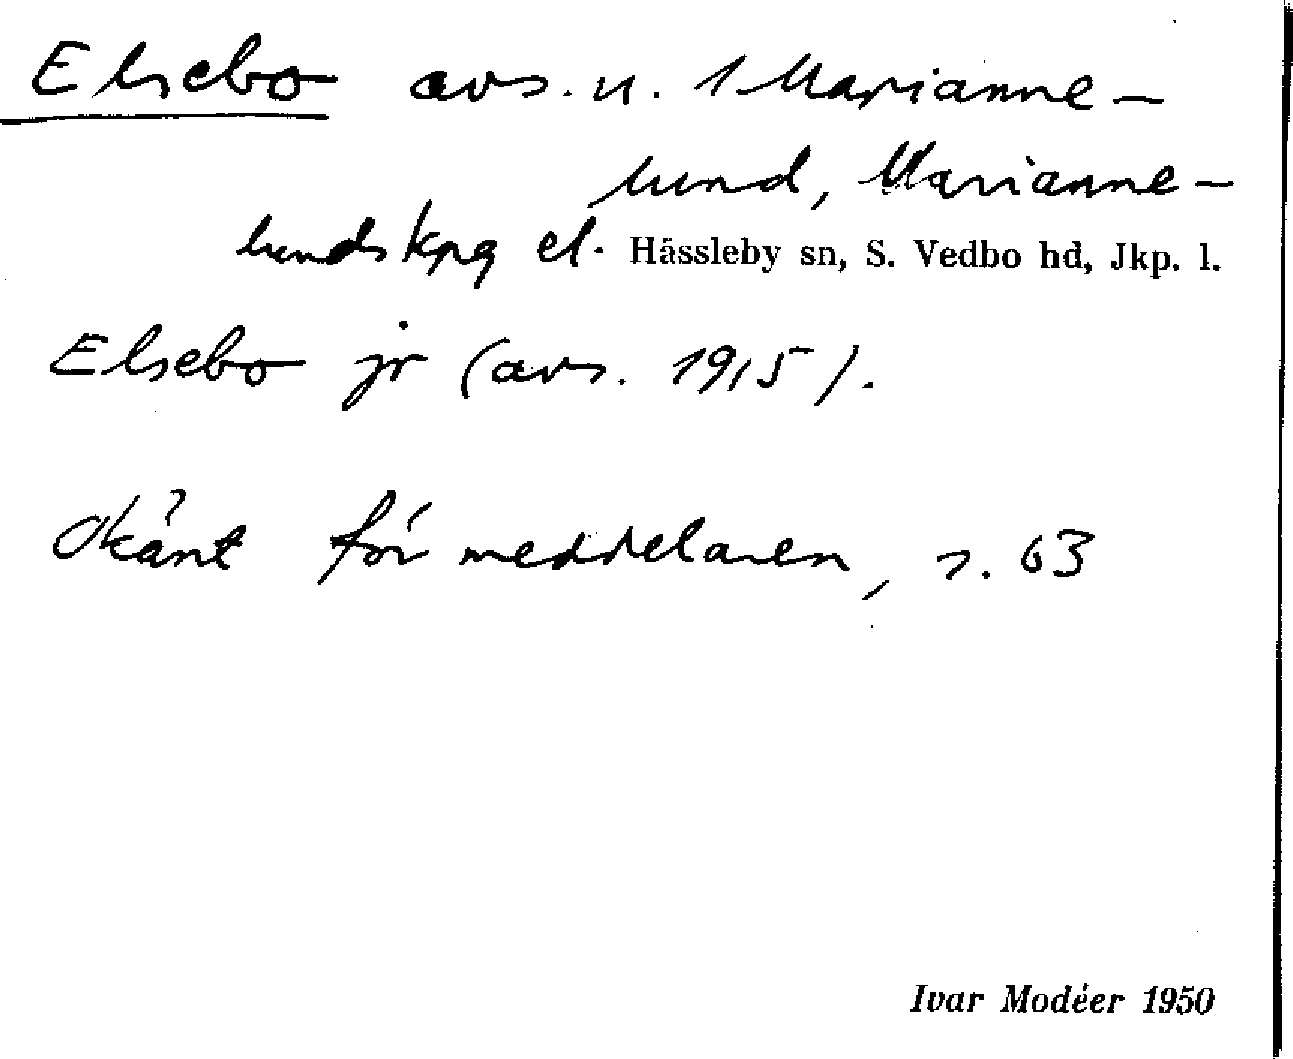 Elsebo avs. u. 1 Marianne-
lund, Marianne-
lunds kpg el. Hässleby sn, S. Vedbo hd, Jkp. l.
Elsebo jr (avs. 1915).
Okänt för meddelaren, s. 63
Ivar Modéer 1950